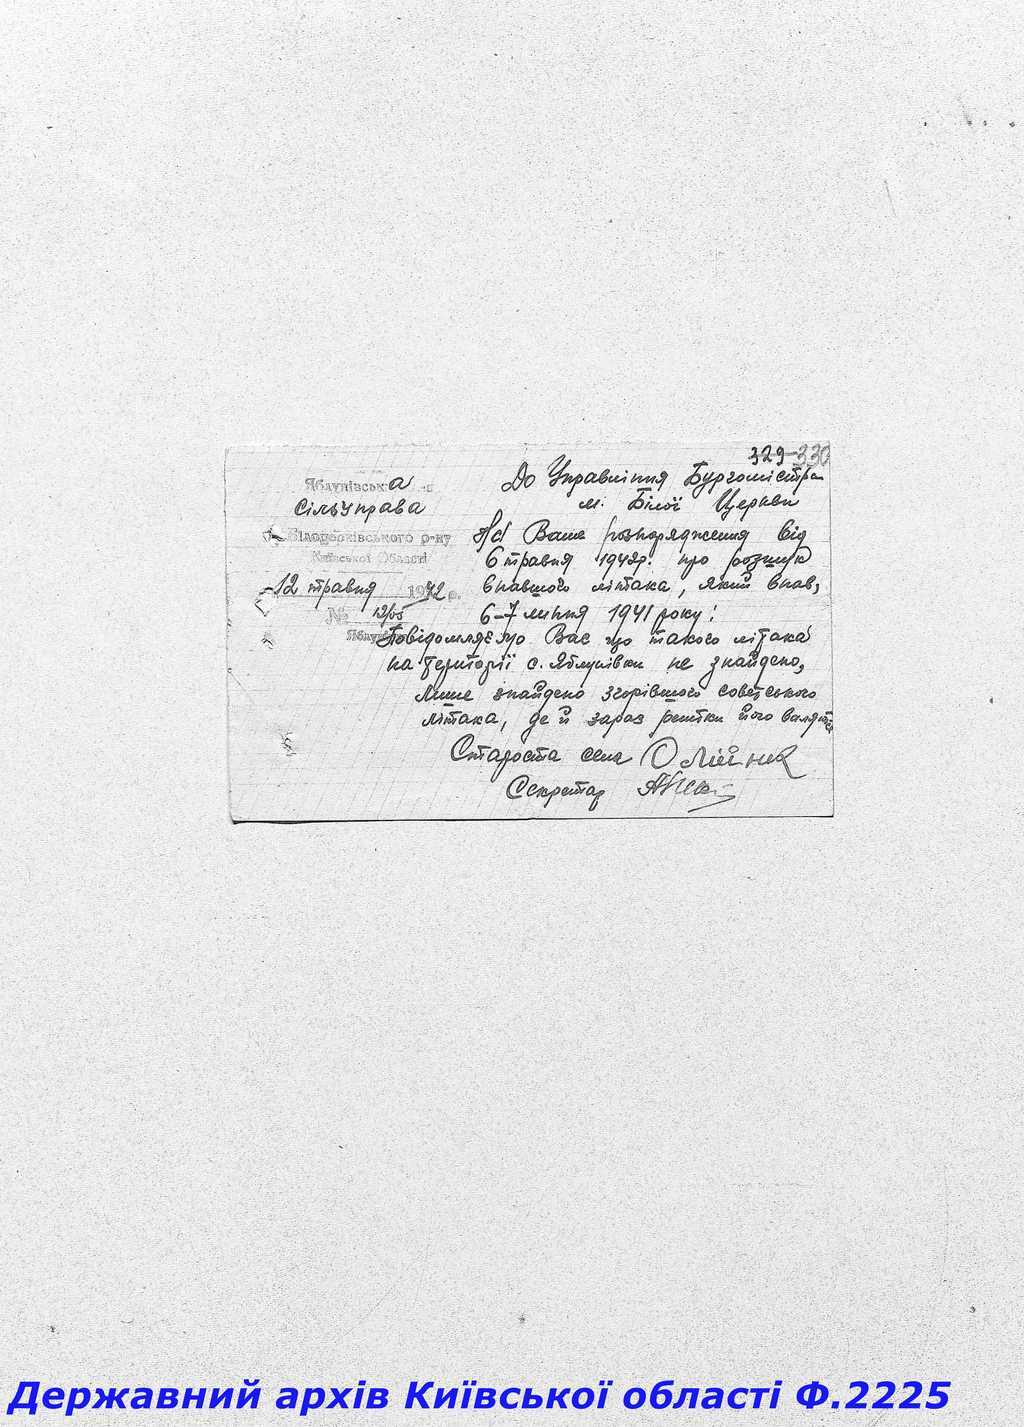 329-330
Яблунівська
Сільуправа
Білоцерківського р-ну
Київської Області
12 травня 1942 р.
№
До Управління Бургомістра
м. Білої Церкви
На Ваше розпорядження від
6 травня 1942р. про розшук
впавшого літака, який впав,
6-7 липня 1941 року!
Повідомляємо Вас що такого літака
на території с. Яблунівки не знайдено,
лише знайдено згорівшого советського
літака, де й зараз рештки його
Староста села Олійник
Секретар
Державний архів Київської області Ф.2225